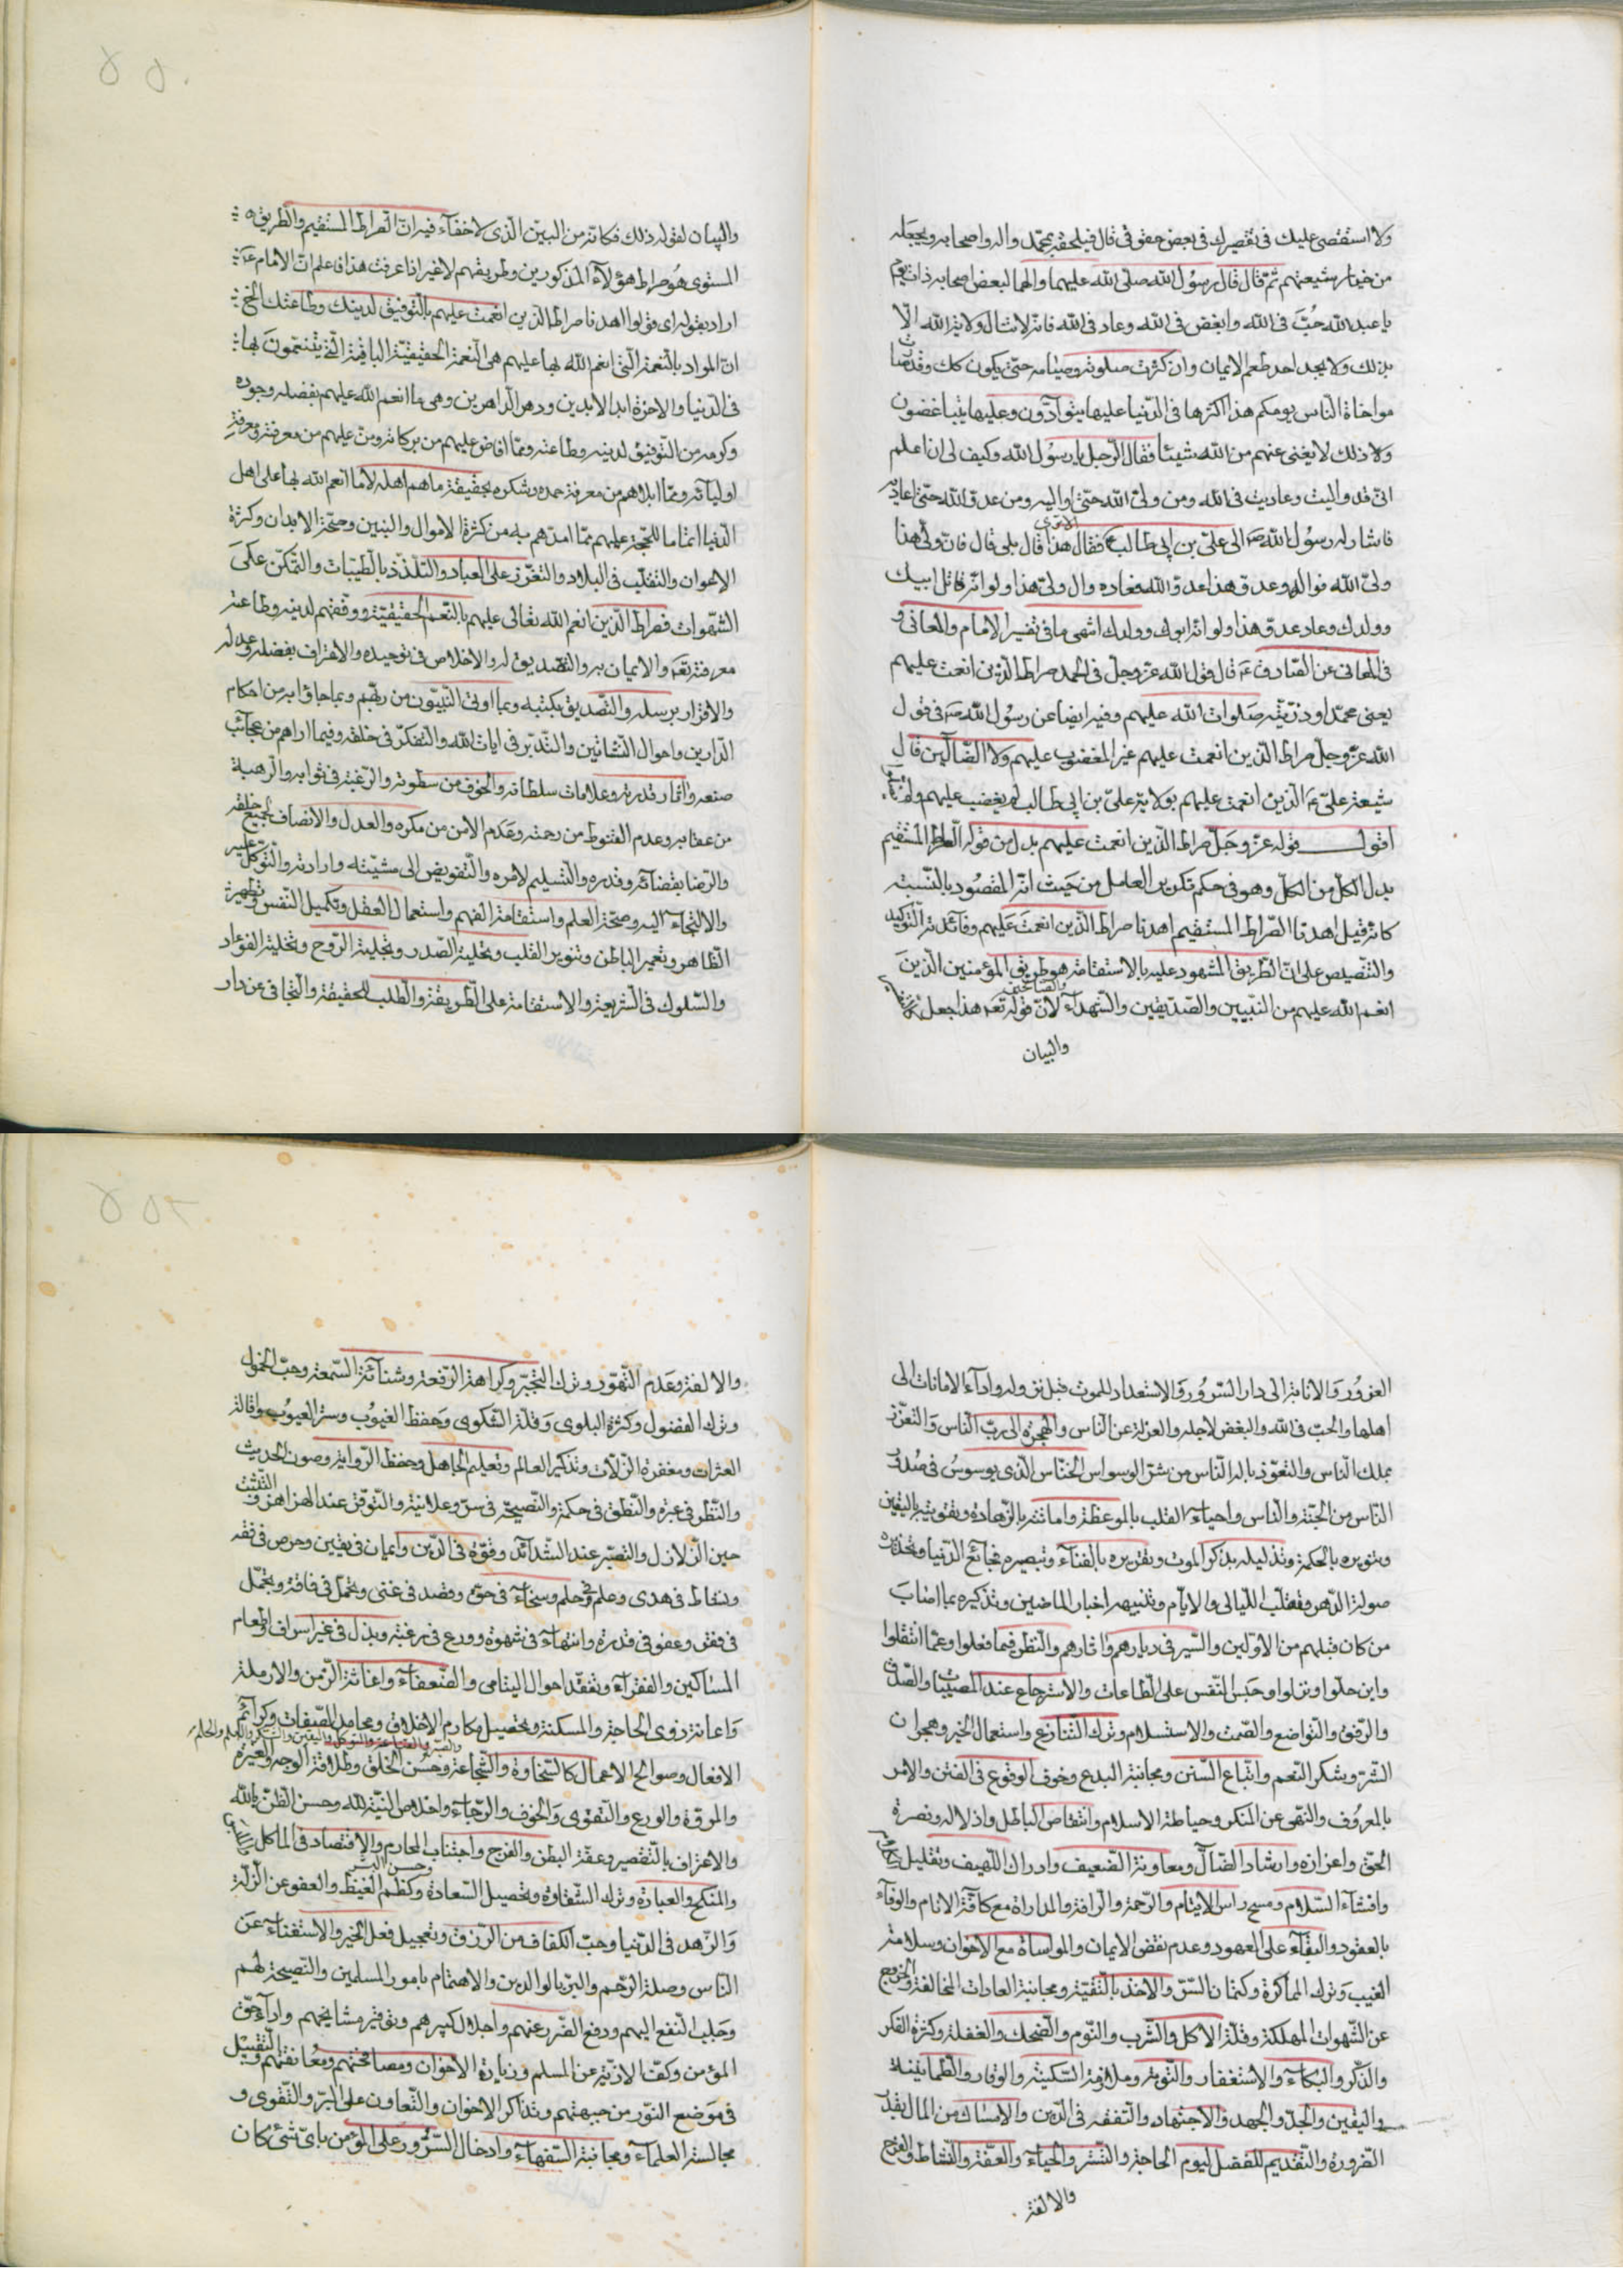 ولا استقصی علیك فی تقصیرك فی بعض حقوقی قال فیلحقه بمحمد واله واصحابه ویجعله
من خیار شیعتهم ثم قال قال رسول الله صلی الله علیهما والهما لبعض اصحابه ذات یوم
یا عبد الله حُبَّ فی الله وابغض فی الله وعاد فی الله فانه لا تنال ولایة الله الّا
بذلك ولا یجد احد طعم الایمان وان کثرت صلوته وصیامه حتی یکون کك وقد صارت
مواخاة الناس یومکم هذا اکثرها فی الدنیا علیها یتوادّون وعلیها یتباغضون
ولا ذلك لا یغنی عنهم من الله شیئا فقال الرجل یا رسول الله وکیف لی ان اعلم
انّی قد والیت وعادیت فی الله ومن ولیّ الله حتی اوالیه ومن عدوّ الله حتی اعادیه
فاشار له رسول الله ص الی علیّ بن ابی طالب ع فقال اتری هذا قال بلی قال فانّ ولیّ هذا
ولیّ الله فواله وعدوّ هذا عدوّ الله فعاده وال ولیّ هذا ولو انّه قاتل ابیك
وولدك وعاد عدوّ هذا ولو انّه ابوك وولدك انتهی ما فی تفسیر الامام والمعانی و
فی المعانی عن الصادق ع قال قول الله عزّ وجلّ فی الحمد صراط الذین انعمت علیهم
یعنی محمّدا وذرّیّته صلوات الله علیهم وفیه ایضا عن رسول الله ص فی قول
الله عزّ وجلّ صراط الذین انعمت علیهم غیر المغضوب علیهم ولا الضالّین قال
شیعة علیّ ع الذین انعمت علیهم بولایة علیّ بن ابی طالب لم یغضب علیهم ولم یضلّوا
اقول قوله عزّ وجلّ صراط الذین انعمت علیهم بدل من قوله الصراط المستقیم
بدل الکلّ من الکلّ وهو فی حکم تکریر العامل من حیث انّه المقصود بالنسبة
کانّه قیل اهدنا الصّراط المستقیم اهدنا صراط الذین انعمت علیهم وفائدته التوکید
والتنصیص علی انّ الطریق المشهود علیه بالاستقامة هو طریق المؤمنین الذین
انعم الله علیهم من النبیین والصدیقین والشهداء والصالحین لانّ قوله تعه هذا جعل
والبیان
والبیان لقوله ذلك فکانه من البین الذی لا خفاء فیه انّ الصراط المستقیم والطریق
المستوی هو صراط هؤلاء المذکورین وطریقهم لا غیر اذا عرفت هذا فاعلم انّ الامام ع
اراد بقوله ای قولوا اهدنا صراط الذین انعمت علیهم بالتوفیق لدینك وطاعتك الخ
انّ المراد بالنعمة التی انعم الله بها علیهم هی النعمة الحقیقیّة الباقیة التی یتنعّمون بها
فی الدنیا والاخرة ابد الابدین ودهر الداهرین وهی ما انعم الله علیهم بفضله وجوده
وکرمه من التوفیق لدینه وطاعته وممّا افاض علیهم من برکاته ومنّ علیهم من معرفته ومعرفة
اولیائه وممّا ابلاهم من معرفة حمده وشکره بحقیقة ما هم اهله لا ما انعم الله بها علی اهل
الدنیا اتماما للحجّة علیهم ممّا امدّهم به من کثرة الاموال والبنین وصحّة الابدان وکثرة
الاعوان والتقلّب فی البلاد والتعزّز علی العباد والتلذّذ بالطیّبات والتمکّن علی
الشهوات فصراط الذین انعم الله تعالی علیهم بالنعم الحقیقیّة ووفّقهم لدینه وطاعته
معرفته تعه والایمان به والتصدیق له والاخلاص فی توحیده والاعتراف بفضله وعدله
والاقرار برسله والتصدیق بکتبه وبما اوتی النبیّون من ربّهم وبما جاؤا به من احکام
الدارین واحوال النشأتین والتدبّر فی ایات الله والتفکّر فی خلقه وفیما اراهم من عجائب
صنعه واثار قدرته وعلامات سلطانه والخوف من سطوته والرغبة فی ثوابه والرهبة
من عقابه وعدم القنوط من رحمته وعدم الامن من مکره والعدل والانصاف لجمیع خلقه
والرضا بقضائه وقدره والتسلیم لامره والتفویض الی مشیّته وارادته والتوکّل علیه
والالتجاء الیه وصحّة العلم واستقامة الفهم واستعمال العقل وتکمیل النفس وتطهیر
الظاهر وتعمیر الباطن وتنویر القلب وتحلیة الصدر وتجلیة الروح وتخلیة الفؤاد
والسلوك فی الشریعة والاستقامة علی الطریقة والطلب للحقیقة والتجافی عن دار
الغرور والانابة الی دار السرور والاستعداد للموت قبل نزوله واداء الامانات الی
اهلها والحبّ فی الله والبغض لاجله والعزلة عن الناس والهجرة الی ربّ الناس والتعزّز
بملك الناس والتعوّذ باله الناس من شرّ الوسواس الخنّاس الذی یوسوس فی صدور
الناس من الجنّة والناس واحیاء القلب بالموعظة واماتته بالزهادة وتقویته بالیقین
وتنویره بالحکمة وتذلیله بذکر الموت وتقریره بالفناء وتبصیره فجائع الدنیا وتحذیره
صولة الدهر وتقلّب اللیالی والایام وتنبیهه اخبار الماضین وتذکیره بما اصاب
من کان قبلهم من الاوّلین والسیر فی دیارهم واثارهم والنظر فیما فعلوا وعمّا انتقلوا
واین حلّوا ونزلوا وحبس النفس علی الطاعات والاسترجاع عند المصیبات والصدق
والرفق والتواضع والصمت والاستسلام وترك التنازع واستعمال الخیر وهجران
الشرّ وشکر النعم واتباع السنن ومجانبة البدع وخوف الوقوع فی الفتن والامر
بالمعروف والنهی عن المنکر وحیاطة الاسلام وانتقاص الباطل واذلاله ونصرة
الحقّ واعزازه وارشاد الضالّ ومعاونة الضعیف وادراك اللهیف وتقلیل
وافشاء السلام ومسح راس الایتام والرحمة والرافة والمداراة مع کافّة الانام والوفاء
بالعقود والبقاء علی العهود وعدم نقض الایمان والمواساة مع الاخوان وسلامة
الغیب وترك المماکرة وکتمان السرّ والاخذ بالتقیّة ومجانبة العادات المخالفة والخروج
عن الشهوات المهلکة وقلّة الاکل والشرب والنوم والضحك والغفلة وکثرة الفکر
والذکر والبکاء والاستغفار والتوبة وملازمة السکینة والوقار والطمانینة
والیقین والجدّ والجهد والاجتهاد والتفقه فی الدین والامساك من المال بقدر
الضرورة والتقدیم للفضل لیوم الحاجة والتستر والحیاء والعفّة والنشاط والفرح
والالفة
والالفة وعدم التهوّر وترك التجبّر وکراهة الرفعة وشناءة السمعة وحبّ الخمول
وترك الفضول وکثرة البلوی وقلّة الشکوی وحفظ الغیوب وستر العیوب واقالة
العثرات ومغفرة الزلّات وتذکیر العالم وتعلیم الجاهل وحفظ الروایة وصون الحدیث
والنظر فی عبرة والنطق فی حکمة والنصیحة فی سرّ وعلانیة والتوقر عند الهزاهز والتثبّت
حین الزلازل والتصبّر عند الشدائد وقوّة فی الدین وایمان فی یقین وحرص فی فقه
ونشاط فی هدی وعلم فی حلم وسخاء فی حقّ وقصد فی غنی وتجمّل فی فاقة وتحمّل
فی فقر وعفو فی قدرة وانتهاء فی شهوة وورع فی رغبة وبذل فی غیر اسراف واطعام
المساکین والفقراء وتفقّد احوال الیتامی والضعفاء واغاثة الزمن والارملة
واعانة ذوی الحاجة والمسکنة وتحصیل مکارم الاخلاق ومحامد الصفات وکرائم
والصبر والقناعة والتوکل والیقین والشکر والعلم والحلم
الافعال وصوالح الاعمال کالسخاوة والشجاعة وحسن الخلق وطلاقة الوجه والغیرة
والمروّة والورع والتقوی والخوف والرجاء واخلاص النیّة لله وحسن الظنّ بالله
والاعتراف بالتقصیر وعفّة البطن والفرج واجتناب المحارم والاقتصاد فی الماکل
والمنکح والعبادة وترك الشقاوة وتحصیل السعادة وحسن البشر وکظم الغیظ والعفو عن الزلّة
والزهد فی الدنیا وحبّ الکفاف من الرزق وتعجیل فعل الخیر والاستغناء عن
الناس وصلة الرحم والبرّ بالوالدین والاهتمام بامور المسلمین والنصیحة لهم
وجلب النفع الیهم ودفع الضرر عنهم واجلال کبیرهم وتوقیر مشایخهم واداء حقّ
المؤمن وکفّ الاذیّة عن المسلم وزیارة الاخوان ومصافحتهم ومعانقتهم والتقبیل
فی موضع النور من جبهتهم وتذاکر الاخوان والتعاون علی البرّ والتقوی و
مجالسة العلماء ومجانبة السفهاء وادخال السرور علی المؤمن بایّ شئ کان